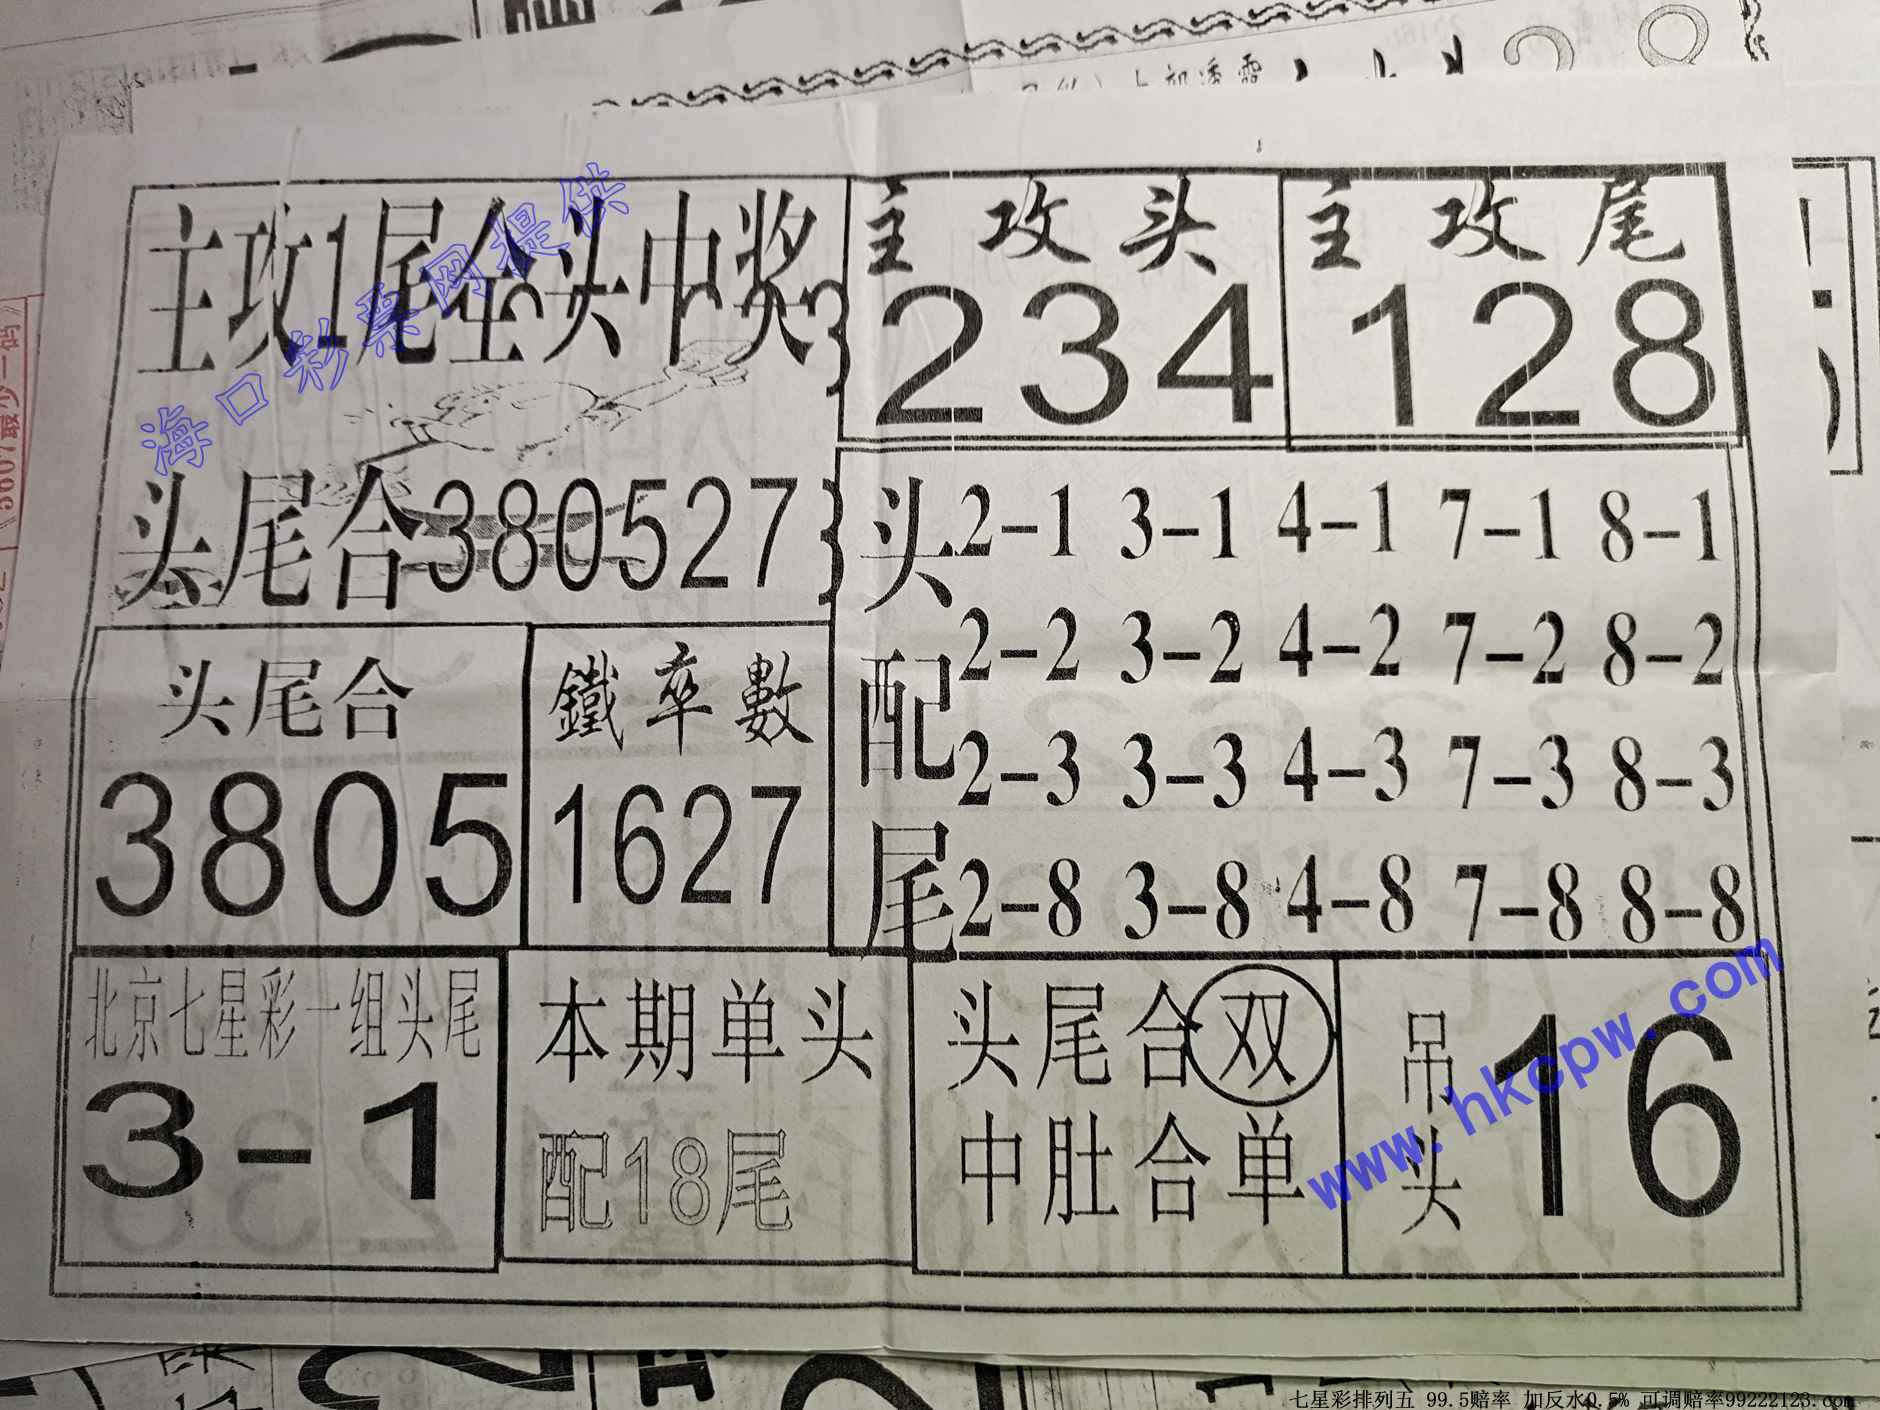 主攻1尾全头中奖
头尾合380527
主攻头
234
主攻尾
128
头配尾
2-1 3-1 4-1 7-1 8-1
2-2 3-2 4-2 7-2 8-2
2-3 3-3 4-3 7-3 8-3
2-8 3-8 4-8 7-8 8-8
头尾合
3805
鐵率數
1627
北京七星彩一组头尾
3-1
本期单头
配18尾
头尾合双
中肚合单
吊头16
海口彩票网提供
www.hkcpw.com
七星彩排列五 99.5赔率 加反水0.5% 可调赔率99222123.com